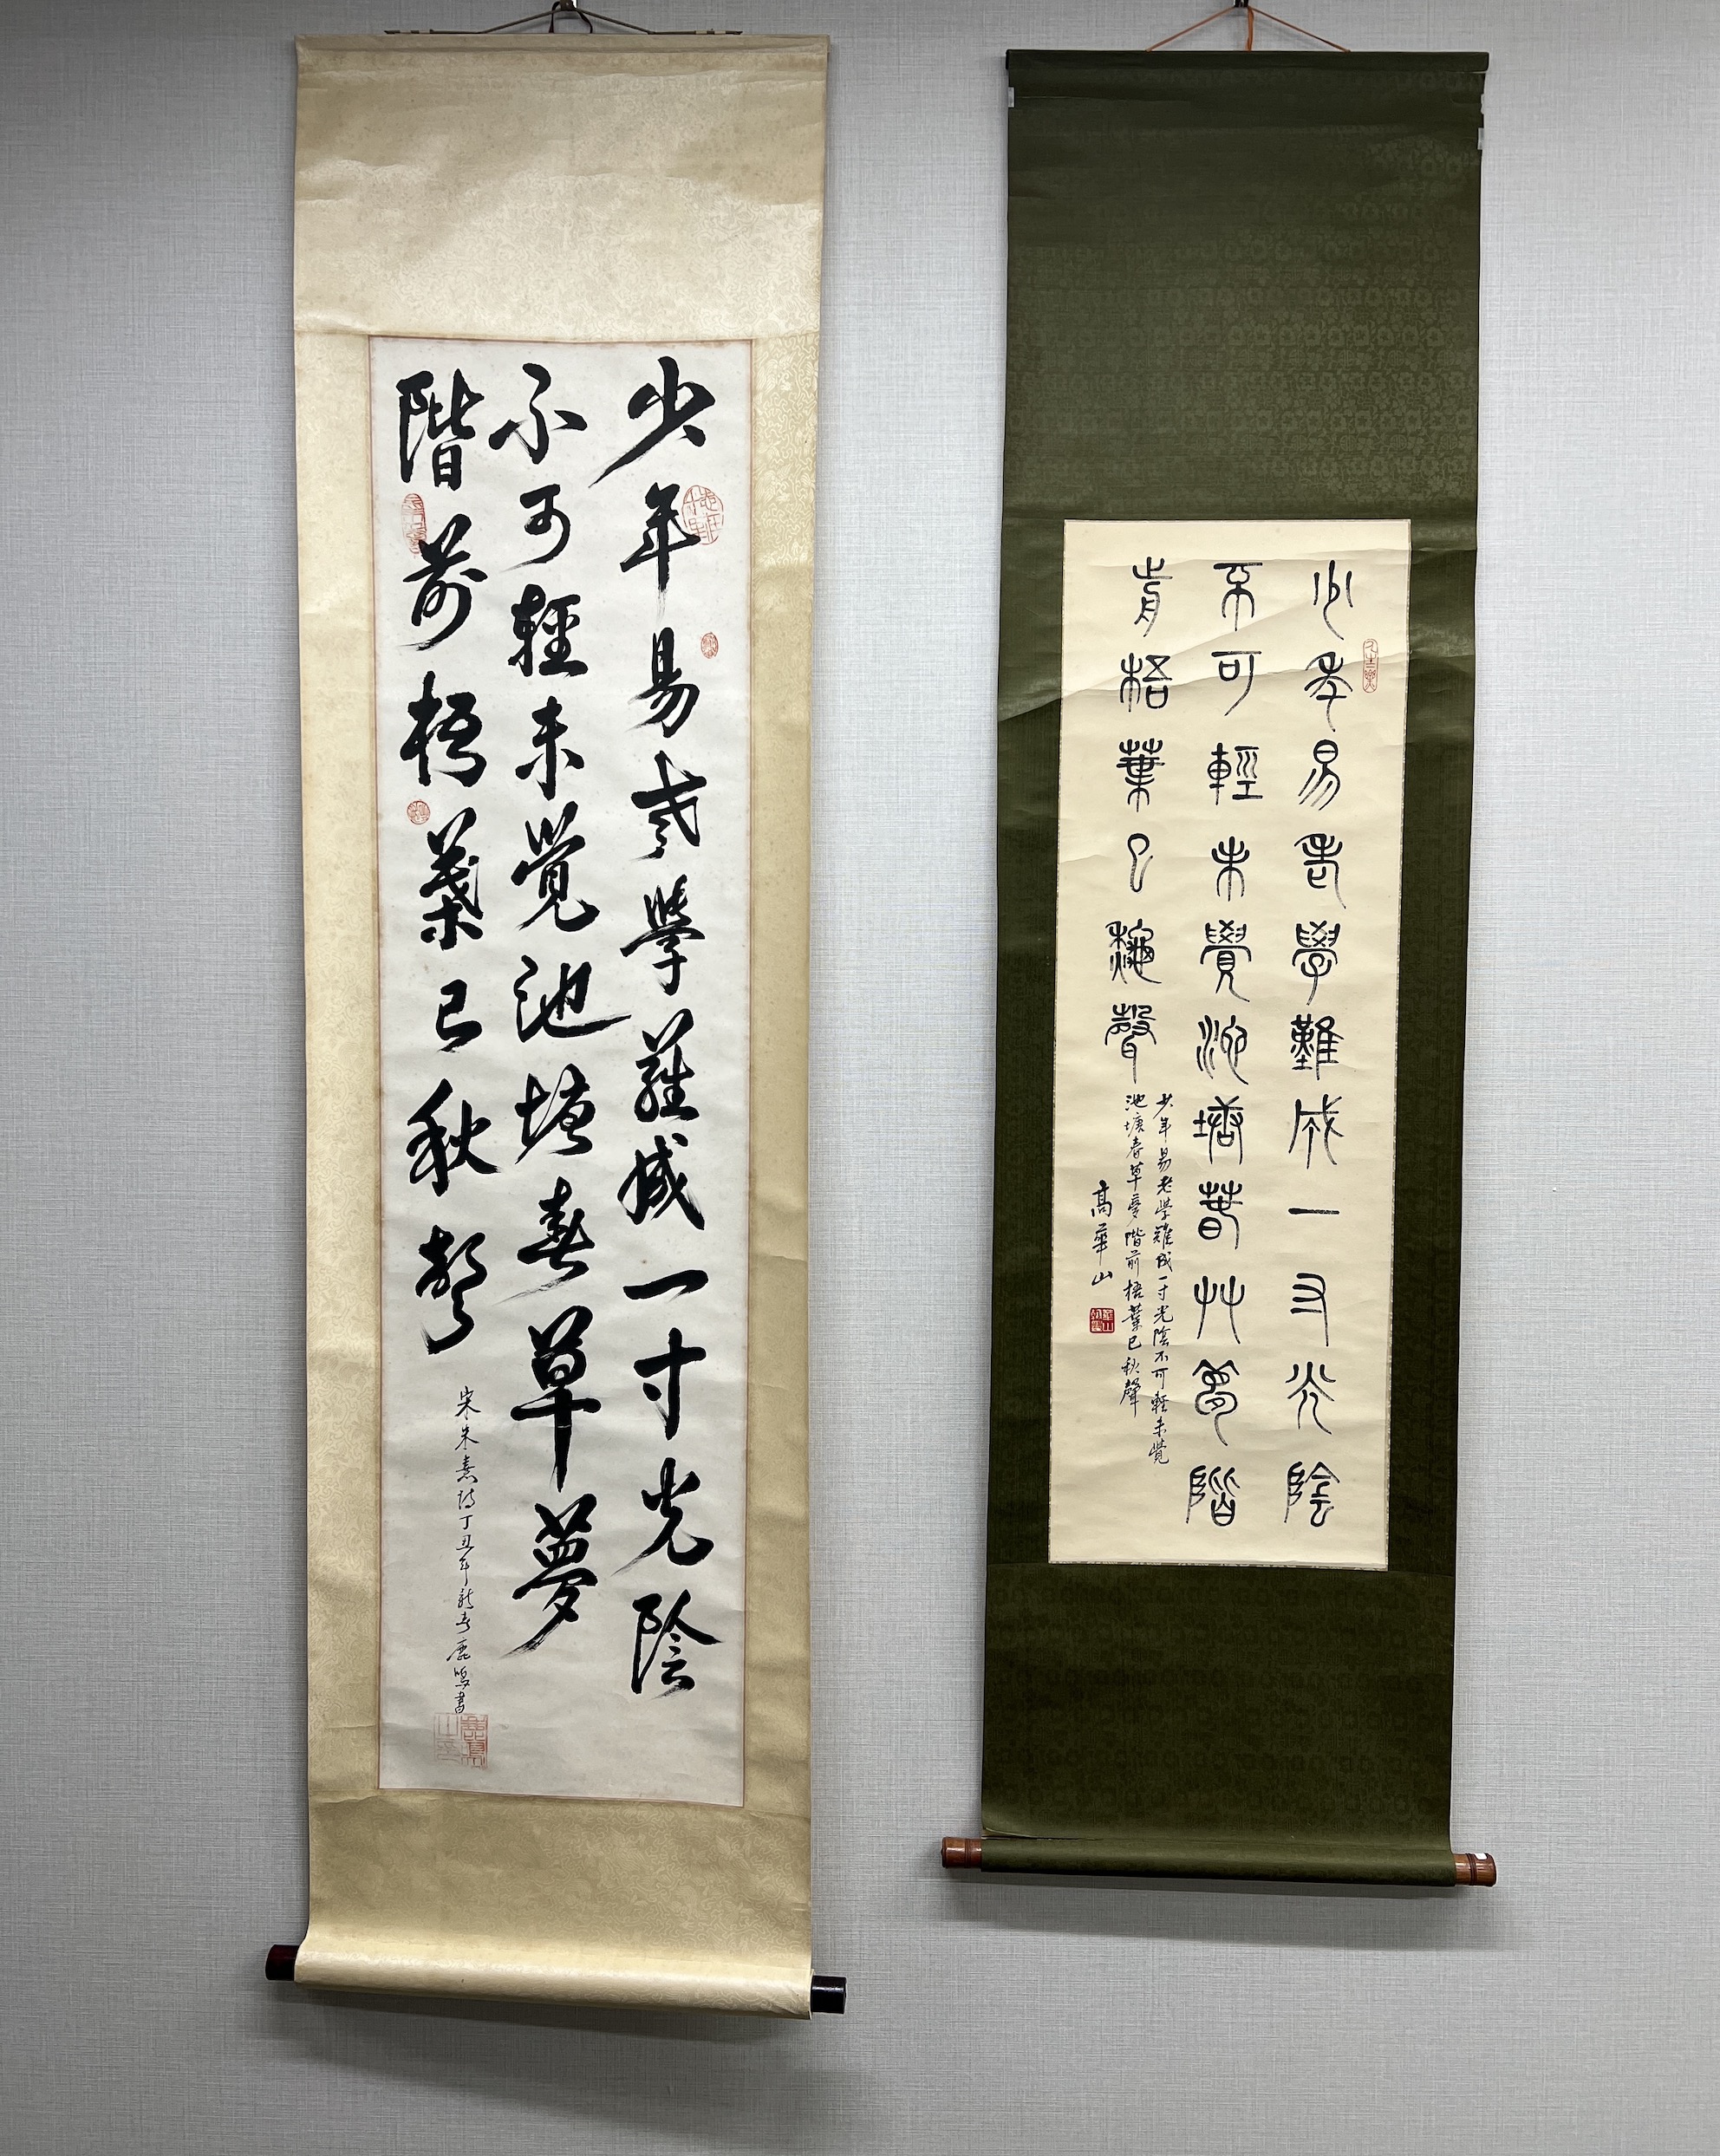 少年易老學難成一寸光陰
不可輕未覺池塘春草夢
階前梧葉已秋聲
宋朱熹詩丁丑年新春鹿鳴書
少年易老學難成一寸光陰
不可輕未覺池塘春草夢階
前梧葉已秋聲
少年易老學難成一寸光陰不可輕未覺
池塘春草夢階前梧葉已秋聲
高華山